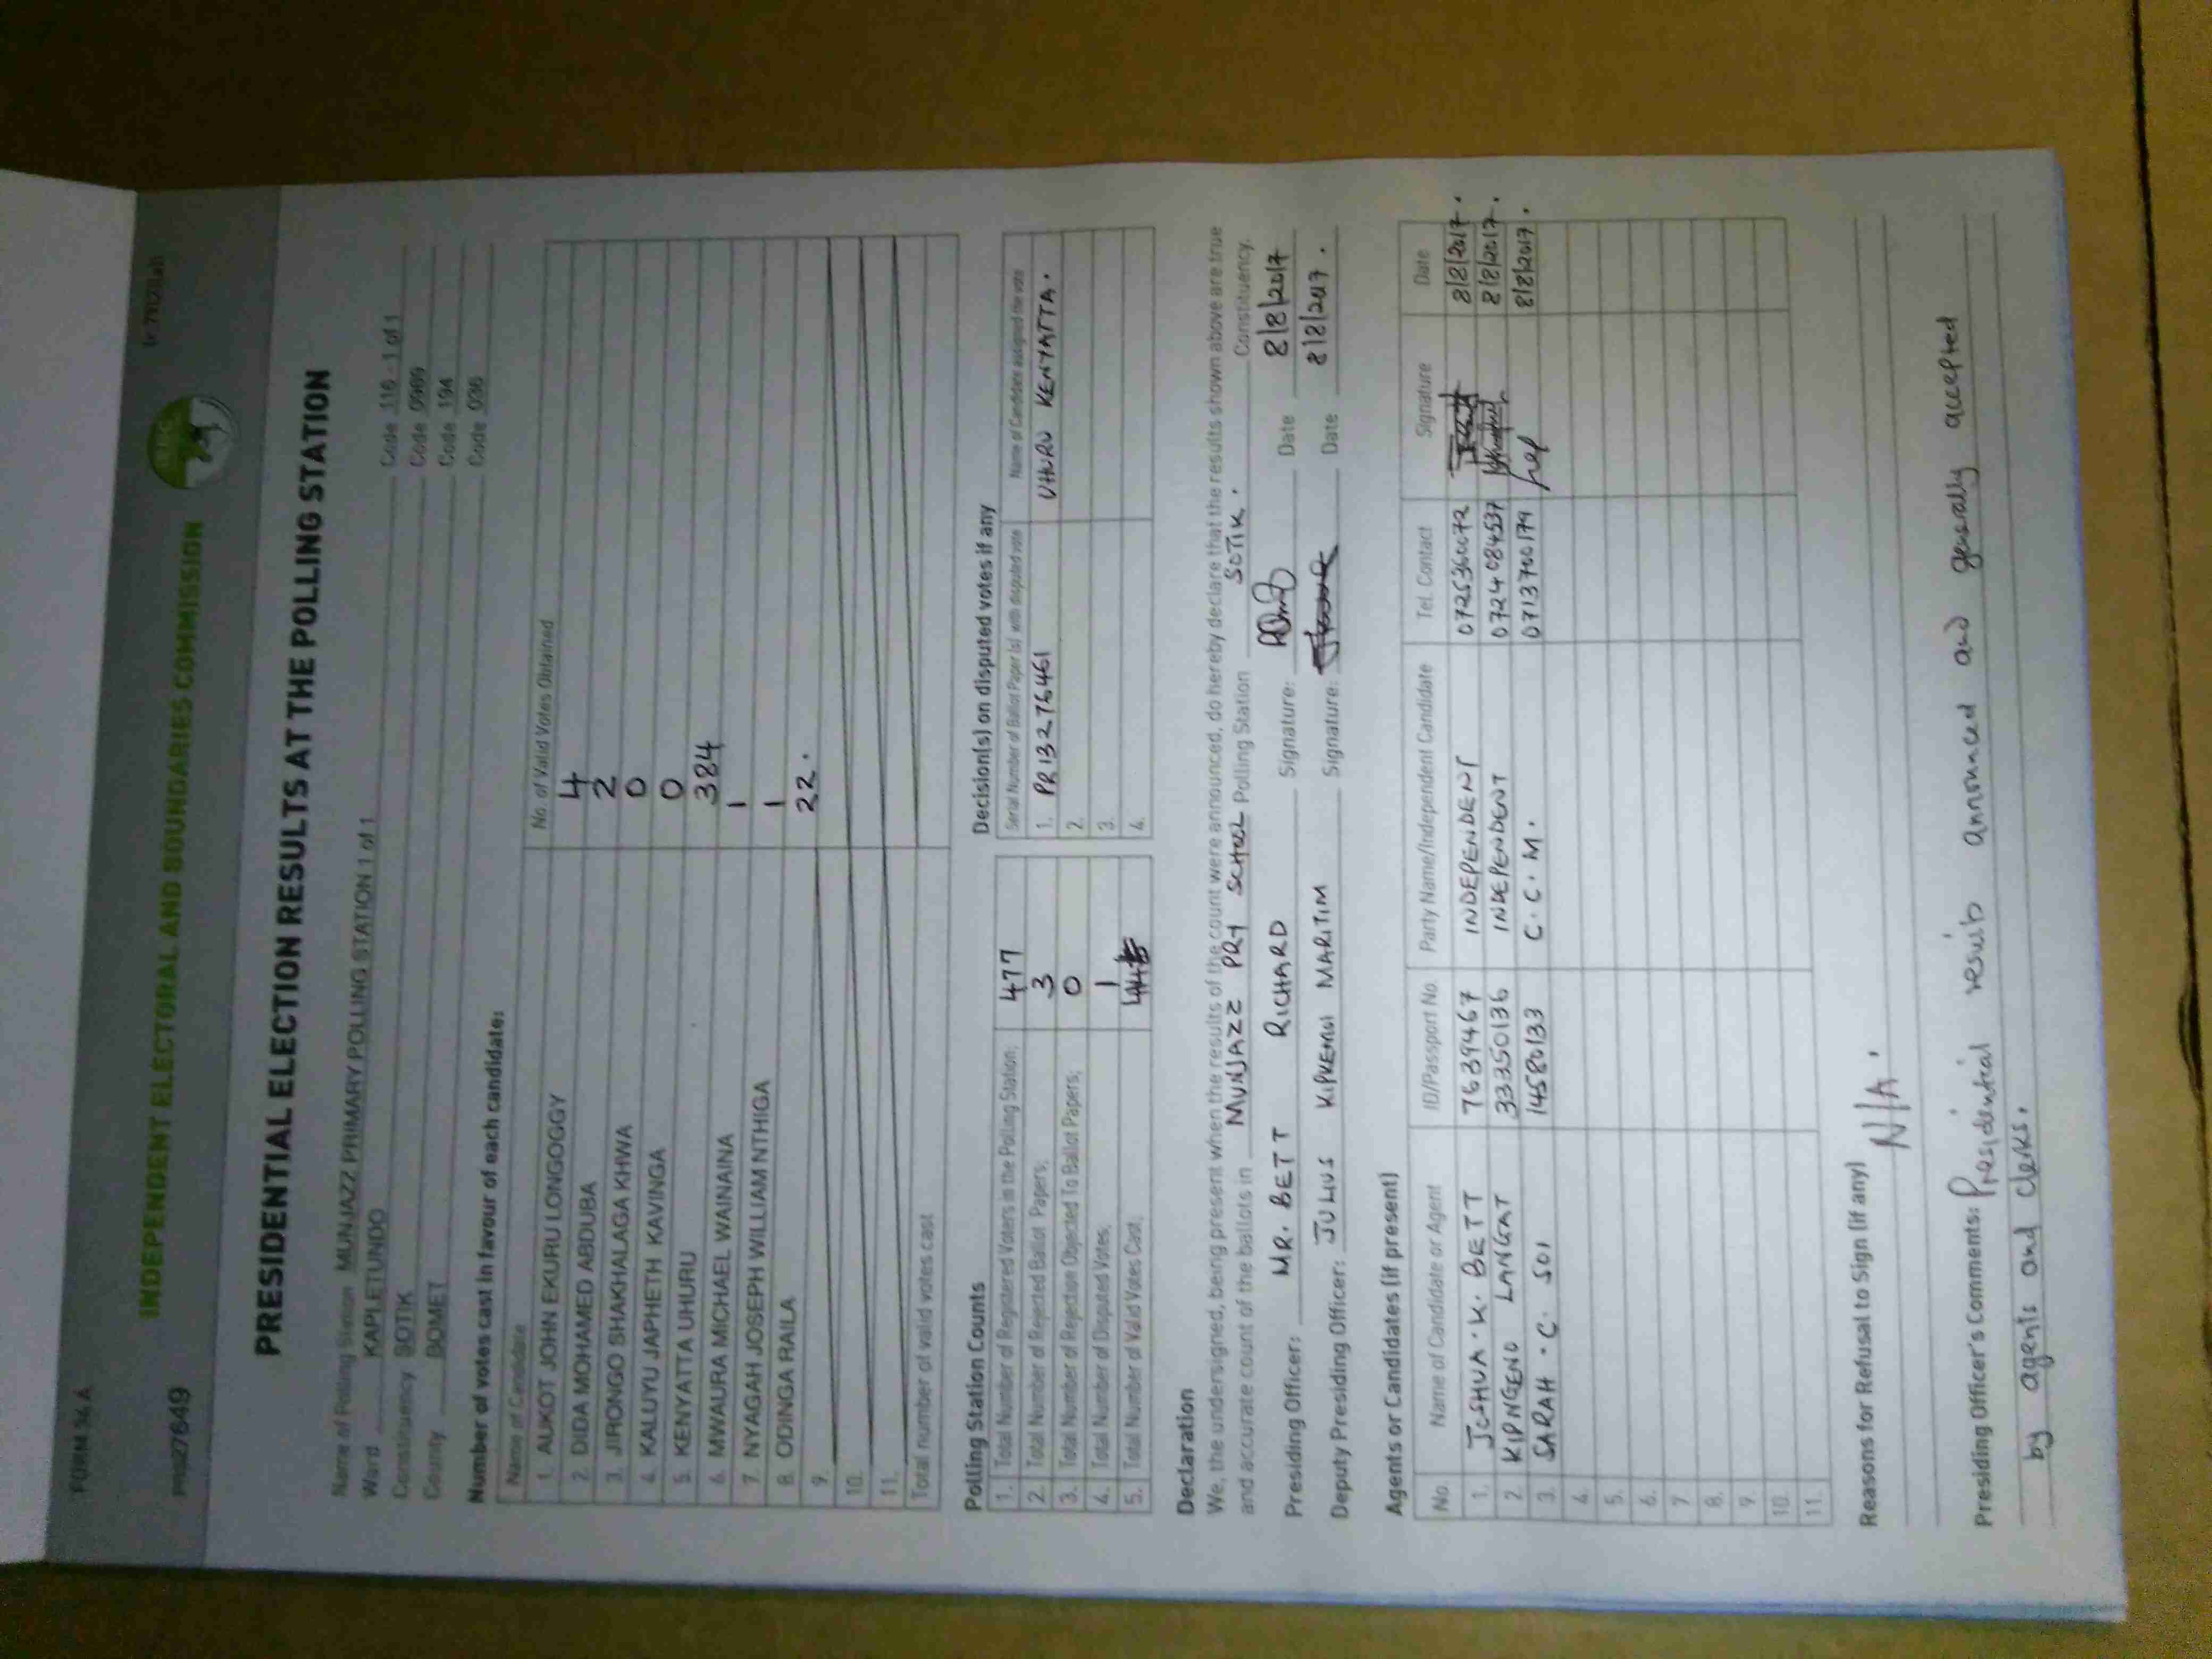 FORM 34 A
INDEPENDENT ELECTORAL AND BOUNDARIES COMMISSION
PRESIDENTIAL ELECTION RESULTS AT THE POLLING STATION
Name of Polling Station MUNJAZZ PRIMARY POLLING STATION 1 of 1 Code 116 - 1 of 1
Ward KAPLETUNDO Code 0969
Constituency SOTIK Code 194
County BOMET Code 036
Number of votes cast in favour of each candidate:
Name of Candidate No. of Valid Votes Obtained
1. AUKOT JOHN EKURU LONGOGGY 4
2. DIDA MOHAMED ABDUBA 2
3. JIRONGO SHAKHALAGA KHWA 0
4. KALUYU JAPHETH KAVINGA 0
5. KENYATTA UHURU 384
6. MWAURA MICHAEL WAINAINA 1
7. NYAGAH JOSEPH WILLIAM NTHIGA 1
8. ODINGA RAILA 22.
9.
10.
11.
Total number of valid votes cast
Polling Station Counts
1. Total Number of Registered Voters in the Polling Station; 477
2. Total Number of Rejected Ballot Papers; 3
3. Total Number of Rejection Objected To Ballot Papers; 0
4. Total Number of Disputed Votes; 1
5. Total Number of Valid Votes Cast;
Decision(s) on disputed votes if any
Serial Number of Ballot Paper (s) with disputed vote Name of Candidate assigned the vote
1. PR13276461 UHURU KENYATTA.
2.
3.
4.
Declaration
We, the undersigned, being present when the results of the count were announced, do hereby declare that the results shown above are true
and accurate count of the ballots in MUNJAZZ PRY SCHOOL Polling Station SOTIK. Constituency.
Presiding Officer: MR. BETT RICHARD Signature: Date 8/8/2017
Deputy Presiding Officer: JULIUS KIPKEMOI MARITIM Signature: Date 8/8/2017.
Agents or Candidates (if present)
No. Name of Candidate or Agent ID/Passport No. Party Name/Independent Candidate Tel. Contact Signature Date
1. JOSHUA.K. BETT 7639467 INDEPENDENT 8/8/2017.
2. KIPNGENO LANGAT 33350136 INDEPENDENT 0724084537 8/8/2017.
3. SARAH.C. SOI 14580133 C.C.M. 0713700179 8/8/2017.
4.
5.
6.
7.
8.
9.
10.
11.
Reasons for Refusal to Sign (if any)
N/A.
Presiding Officer's Comments: Presidential results announced and generally accepted
by agents and clerks.